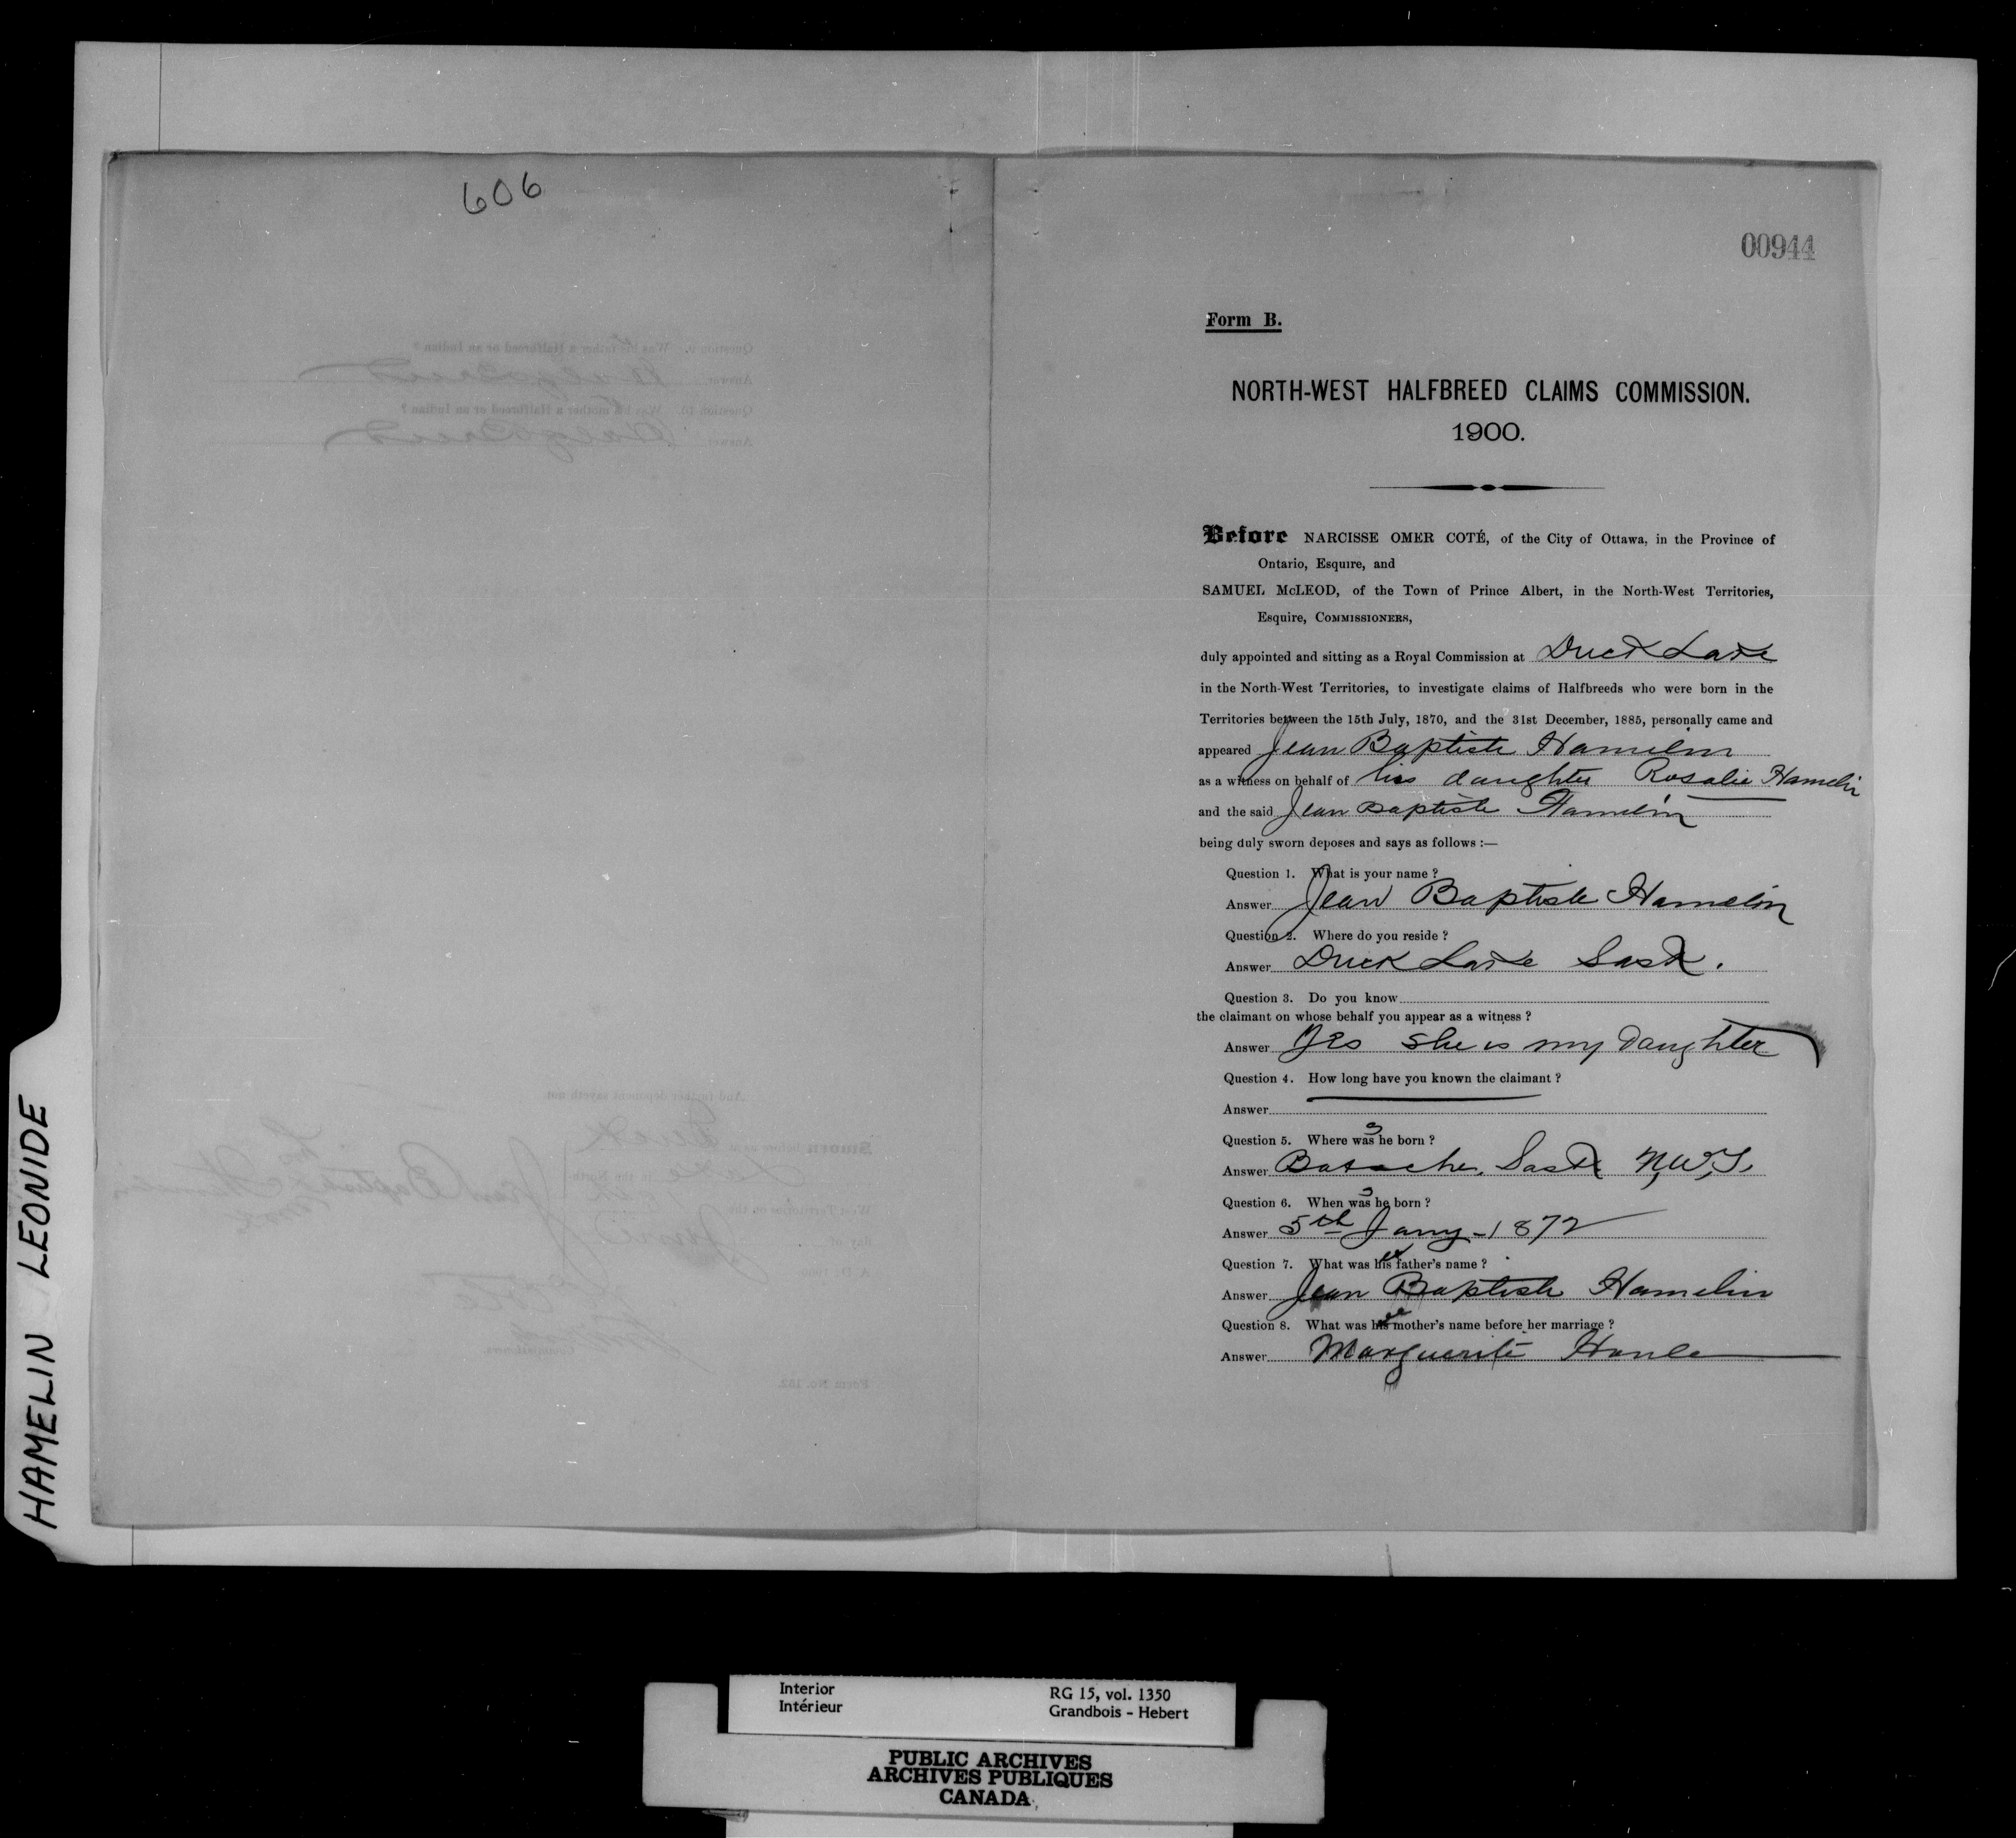 606
00944
Form B.
NORTH-WEST HALFBREED CLAIMS COMMISSION.
1900.
Before NARCISSE OMER COTÉ, of the City of Ottawa, in the Province of
Ontario, Esquire, and
SAMUEL McLEOD, of the Town of Prince Albert, in the North-West Territories,
Esquire, COMMISSIONERS,
duly appointed and sitting as a Royal Commission at Duck Lake
in the North-West Territories, to investigate claims of Halfbreeds who were born in the
Territories between the 15th July, 1870, and the 31st December, 1885, personally came and
appeared Jean Baptiste Hamelin
as a witness on behalf of his daughter Rosalie Hamelin
and the said Jean Baptiste Hamelin
being duly sworn deposes and says as follows :—
Question 1. What is your name ?
Answer Jean Baptiste Hamelin
Question 2. Where do you reside ?
Answer Duck Lake Sask.
Question 3. Do you know
the claimant on whose behalf you appear as a witness ?
Answer Yes she is my daughter
Question 4. How long have you known the claimant ?
Answer
Question 5. Where was she born ?
Answer Batoche, Sask N.W.T.
Question 6. When was she born ?
Answer 5th Jany - 1872
Question 7. What was her father's name ?
Answer Jean Baptiste Hamelin
Question 8. What was her mother's name before her marriage ?
Answer Marguerite
HAMELIN LEONIDE
Interior
Intérieur
RG 15, vol. 1350
Grandbois - Hebert
PUBLIC ARCHIVES
ARCHIVES PUBLIQUES
CANADA